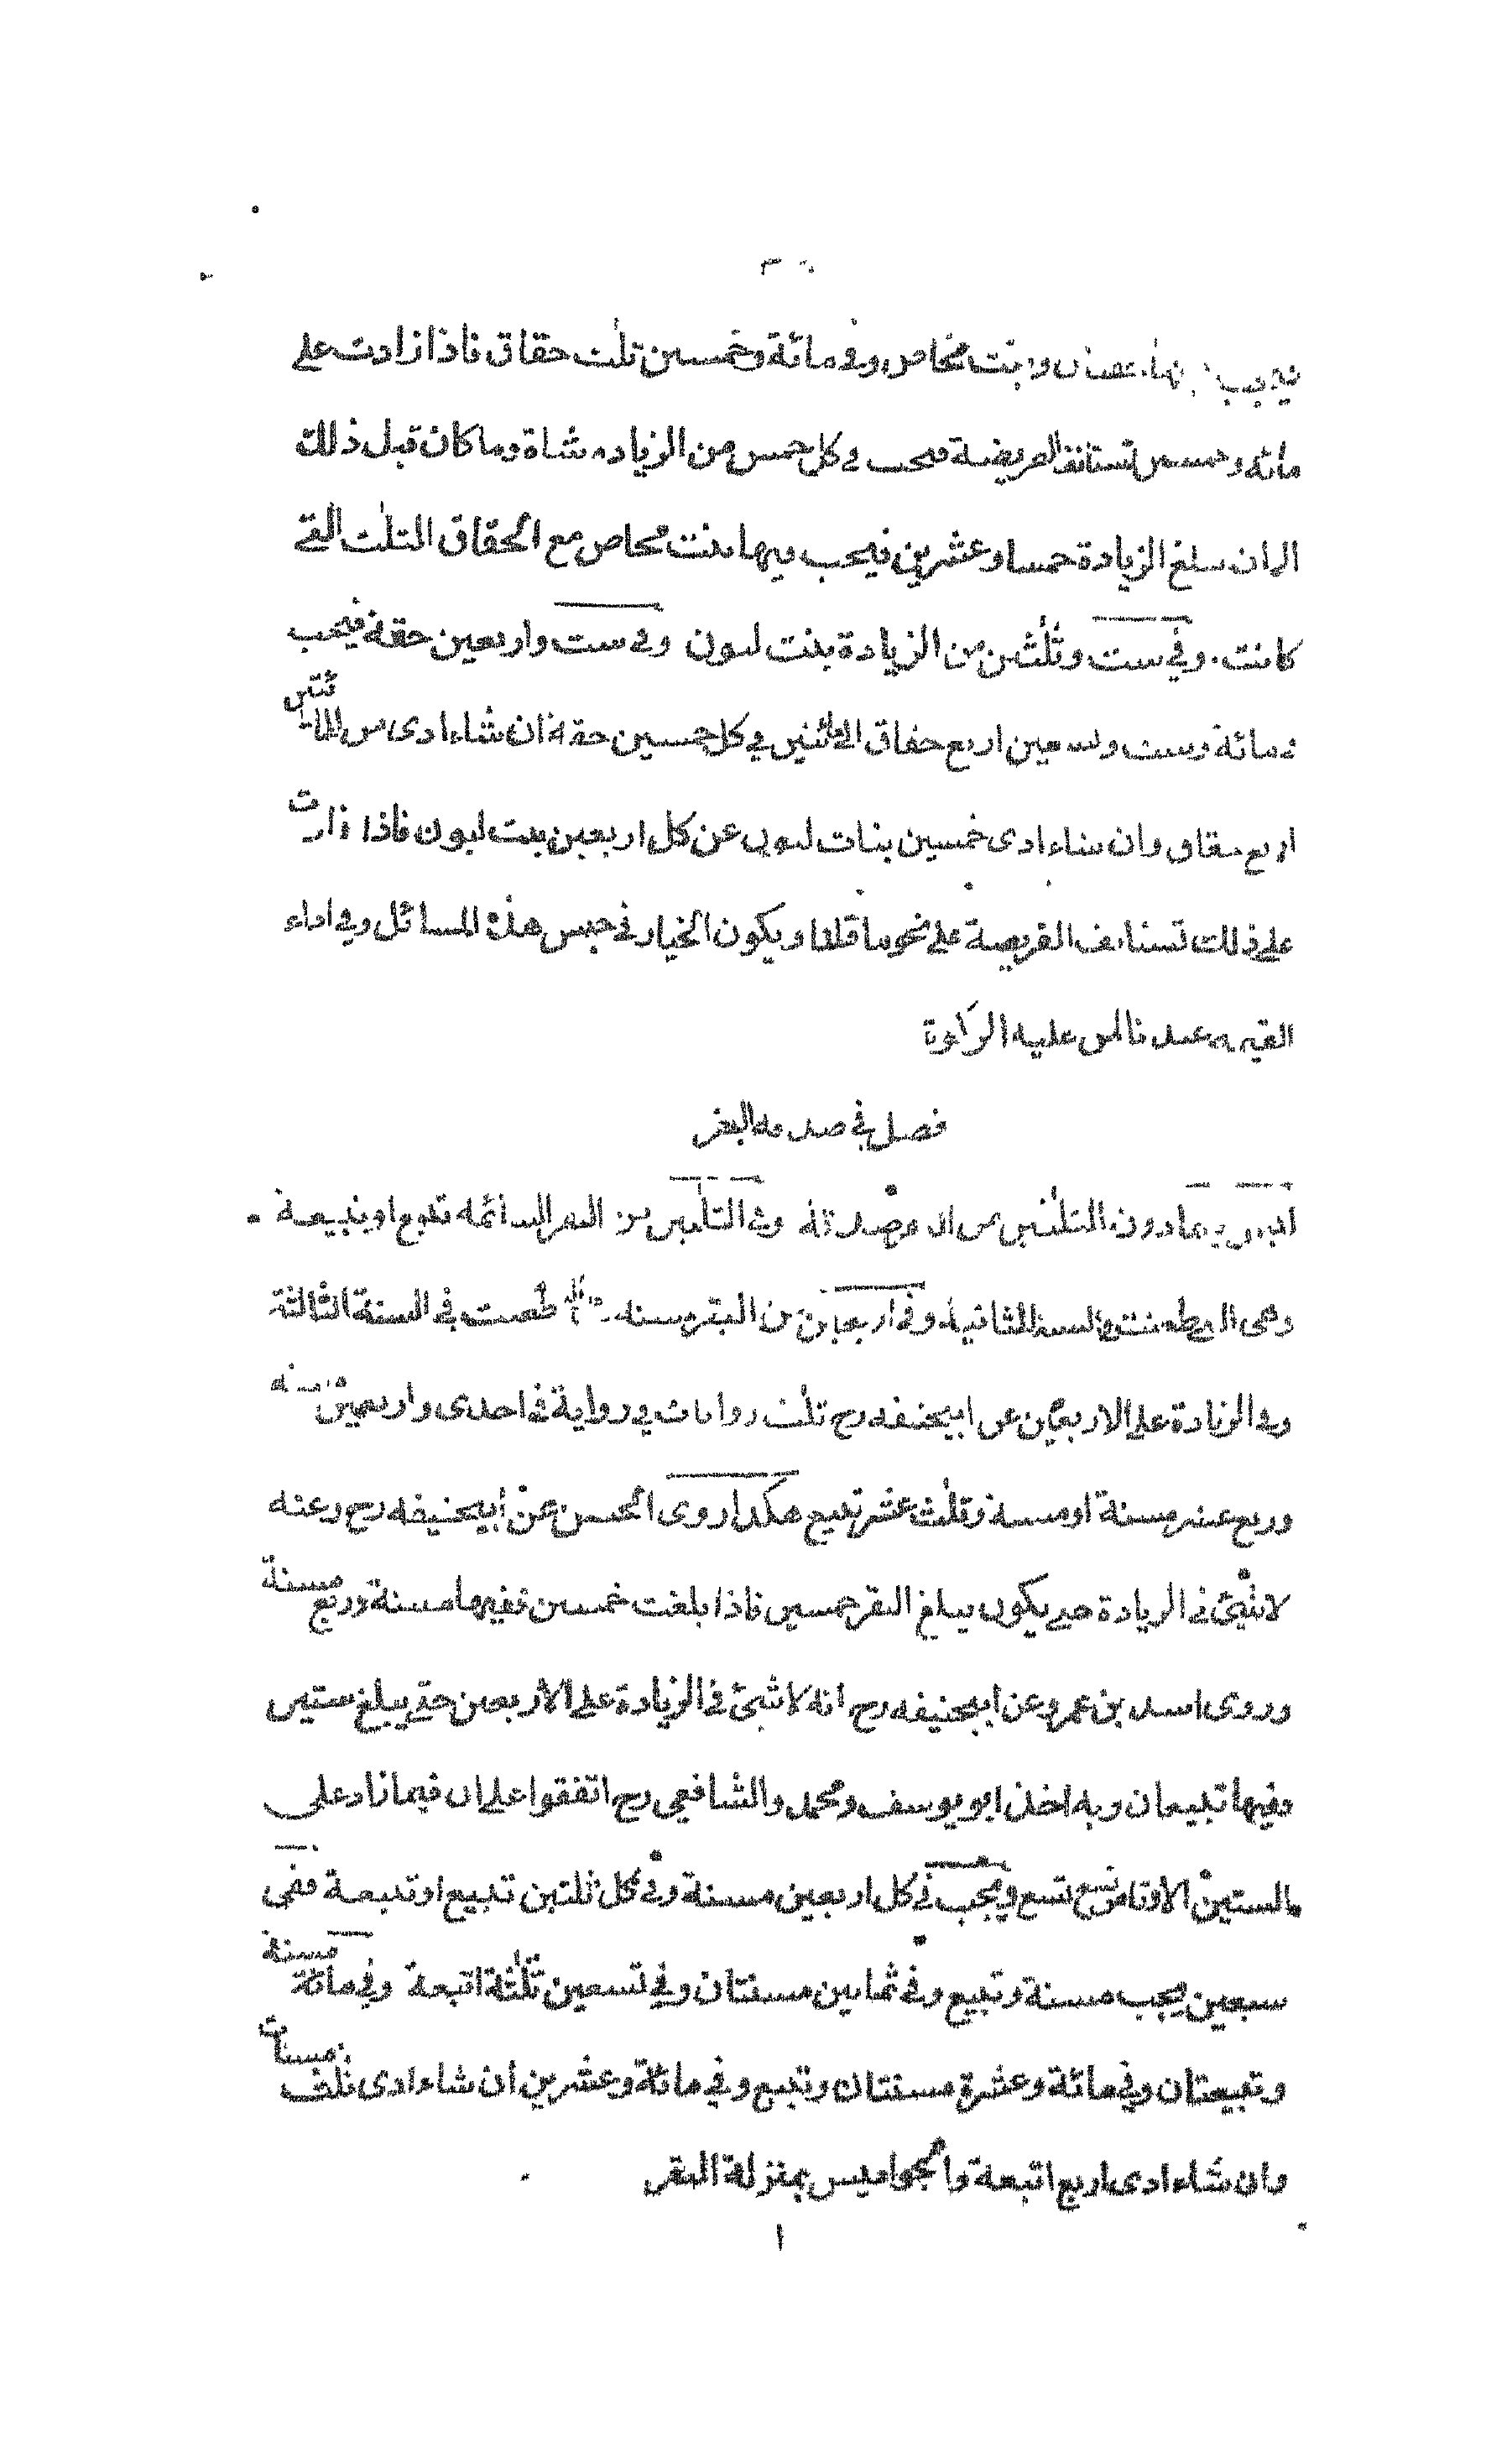 فيجب فيها حقتان وبنت مخاض وفى مائة وخمسين ثلث حقاق فاذا زادت على
مائة وخمسين تستانف الفريضة فيجب فى كل خمس من الزيادة شاة وما كان قبل ذلك
الى ان يبلغ الزيادة خمسا وعشرين فيجب فيها بنت مخاض مع الحقاق الثلث التى
كانت وفى ست وثلثين من الزيادة بنت لبون وفى ست واربعين حقة فيجب
فى مائة وست وتسعين اربع حقاق الى مائتين فى كل خمسين حقة ان شاء ادى من المائتين
اربع حقاق وان شاء ادى خمسين بنات لبون عن كل اربعين بنت لبون فاذا زادت
على ذلك تستانف الفريضة على نحو ما قلنا ويكون الخيار فى جنس هذه المسائل وفى اداء
القيمة عندنا لمن عليه الزكوة
فصل فى صدقة البقر
ليس فيما دون الثلثين من البقر صدقة وفى الثلثين من البقر السائمة تبيع او تبيعة
وهى التى طعنت فى السنة الثانية وفى اربعين من البقر مسنة طعنت فى السنة الثالثة
وفى الزيادة على الاربعين عن ابيحنيفه رح ثلث روايات فى رواية فى احدى واربعين مسنه
وربع عشر مسنة او مسنة وثلث عشر تبيع هكذا روى الحسن عن ابيحنيفه رح وعنه
لا شئ فى الزيادة حتى يكون يبلغ البقر خمسين فاذا بلغت خمسين ففيها مسنة وربع مسنة
وروى اسد بن عمرو عن ابيحنيفه رح انه لا شئ فى الزيادة على الاربعين حتى يبلغ ستين
وفيها تبيعان وبه اخذ ابو يوسف ومحمد والشافعى رح اتفقوا على ان فيما زاد على
الستين الاوقاص تسع تسع ويجب فى كل اربعين مسنة وفى كل ثلثين تبيع او تبيعة ففى
سبعين يجب مسنة وتبيع وفى ثمانين مسنتان وفى تسعين ثلثة اتبعة وفى مائة مسنة
وتبيعتان وفى مائة وعشرة مسنتان وتبيع وفى مائة وعشرين ان شاء ادى ثلث مسنات
وان شاء ادى اربع اتبعة والجواميس بمنزلة البقر